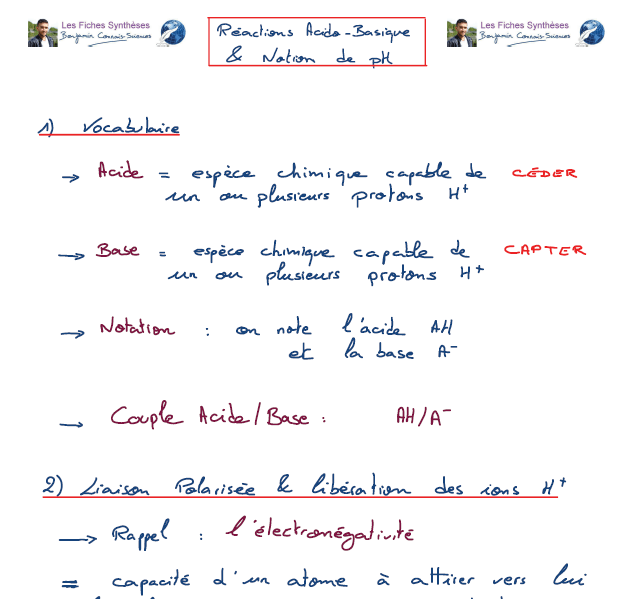 Les Fiches Synthèses
Benjamin Connais-Sciences
Réactions Acido-Basique
& Notion de pH
Les Fiches Synthèses
Benjamin Connais-Sciences
1) Vocabulaire
→ Acide = espèce chimique capable de CÉDER
un ou plusieurs protons H⁺
→ Base = espèce chimique capable de CAPTER
un ou plusieurs protons H⁺
→ Notation : on note l'acide AH
et la base A⁻
→ Couple Acide/Base : AH/A⁻
2) Liaison Polarisée & libération des ions H⁺
→ Rappel : l'électronégativité
= capacité d'un atome à attirer vers lui